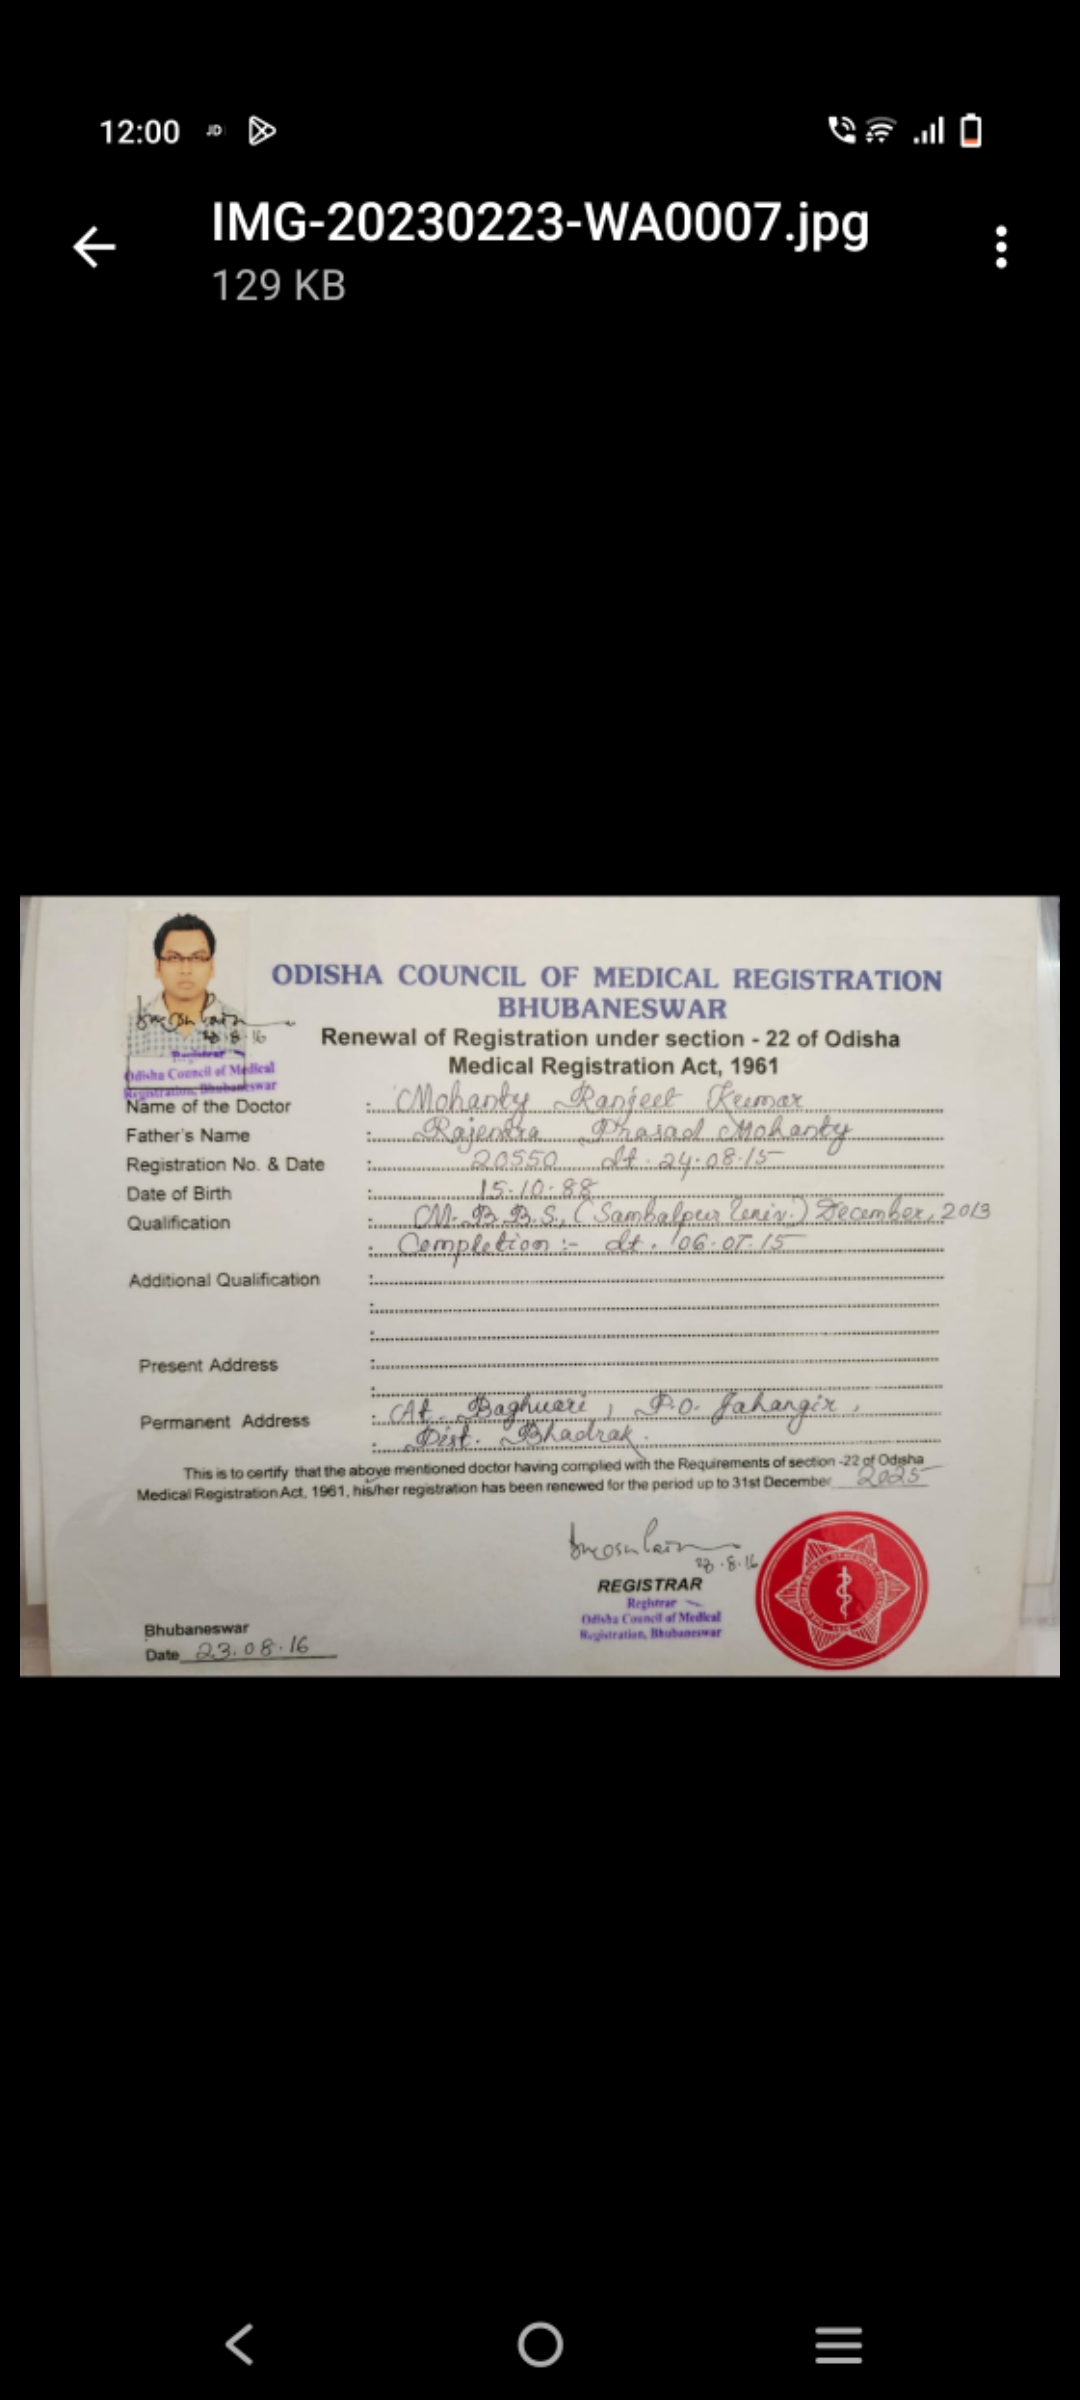 12:00 JD
IMG-20230223-WA0007.jpg
129 KB
ODISHA COUNCIL OF MEDICAL REGISTRATION
BHUBANESWAR
Renewal of Registration under section - 22 of Odisha
Medical Registration Act, 1961
23.8.16
Registrar
Odisha Council of Medical
Registration, Bhubaneswar
Name of the Doctor : Mohanty Ranjeet Kumar
Father's Name : Rajendra Prasad Mohanty
Registration No. & Date : 20550 dt. 24.08.15
Date of Birth : 15.10.88
Qualification : M.B.B.S., (Sambalpur Univ.) December, 2013
: Completion :- dt. 06.07.15
Additional Qualification :
:
:
Present Address :
:
Permanent Address : At. Baghuari, P.O. Jahangir,
: Dist. Bhadrak.
This is to certify that the above mentioned doctor having complied with the Requirements of section -22 of Odisha
Medical Registration Act, 1961, his/her registration has been renewed for the period up to 31st December 2025
23.8.16
REGISTRAR
Registrar
Odisha Council of Medical
Registration, Bhubaneswar
Bhubaneswar
Date 23.08.16